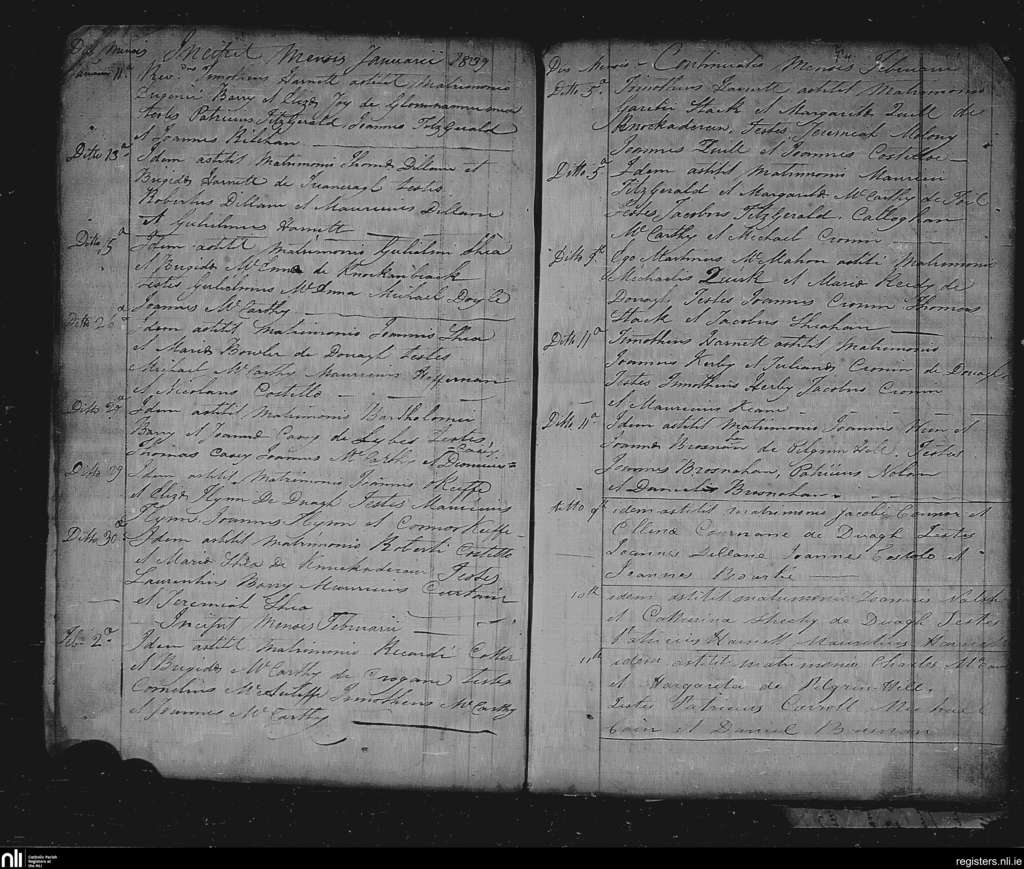 Die Mensis Incipit Mensis Januarii 1839
Januarii 11a Revdus Timotheus Harnett astitit Matrimonio
Eugenii Barry et Eliza Joy de
testes Patricius FitzGerald Joannes FitzGerald
et Joannes
Ditto 13a Idem astitit Matrimonio Thoma Dillane et
Brigida Harnett de testes
Robertus Dillane et Mauricius Dillane
et Gulielmus Harnett
Ditto 5a Idem astitit Matrimonio Gulielmi Shea
et Brigida McEnna de Knockanbrack
testes Gulielmus McEnna Michael Doyle
Joannes McCarthy
Ditto 26a Idem astitit Matrimonio Joannis Shea
et Maria Bowler de Douagh testes
Michael McCarthy Mauricius Heffernan
et Nicolaus Costello
Ditto 29a Idem astitit Matrimonio Bartholomei
Barry et Joanna Casey de testes
Thomas Casey Joannes McCarthy et Dionisius Casey
Ditto 29 Idem astitit Matrimonio Joannis OKeiffe
et Eliza Flynn De Duagh Testes Mauricius
Flynn Joannes Flynn et Connor Keiffe
Ditto 30a Idem astitit Matrimonio Roberti Costello
et Maria Shea de Knuckaderaun Testes
Laurentius Barry Mauricius Curtain
et Jeremiah Shea
Incipit Mensis Februarii
Feb 2a Idem astitit Matrimonio Ricardi
et Brigida McCarthy de Crogane testes
Cornelius McAuliffe Timotheus McCarthy
et Joannes McCarthy
Die Mensis Continuatio Mensis Februarii
Ditto 5a Timotheus Harnett astitit Matrimonio
Stack et Margarita Quill de
Knockaderaun. Testes Jeremiah Molony
Joannes Quill et Joannes Costelloe
Ditto 5a Idem astitit Matrimonii Mauricii
FitzGerald et Margarita McCarthy de
testes Jacobus FitzGerald. Calloghan
McCarthy et Michael Cronin
Ditto 9a Ego Martinus McMahon astiti Matrimonio
Michaelis Quirk et Maria Reidy de
Douagh Testes Joannes Cronin Thomas
Stack et Jacobus Sheahan
Ditto 11a Timotheus Harnett astitit Matrimonio
Joannes Kerby et Juliana Cronin de Douagh
Testes Timotheus Kerby Jacobus Cronin
et Mauricius Keane
Ditto 11a Idem astitit Matrimonio Joannis et
Joanna Brosnan de Pilgrim Hill. Testes
Joannes Brosnahan, Patricius Nolan
et Daniel Brosnahan
ditto 9th idem astitit matrimonio Jacobi Connor et
Ellena Cournane de Duagh Testes
Joannes Dillane Joannes et
Joannes Bourke
10th idem astitit matrimonio Joannis Walsh
et Catherina Sheehy de Duagh Testes
Patricius Harnett Mauricius
11th idem astitit matrimonio Charles
et Margarita de Pilgrim-Hill.
Testes Patricius Carroll Michael
Cain et Daniel Brosnan
nli Catholic Parish Registers at the NLI
registers.nli.ie